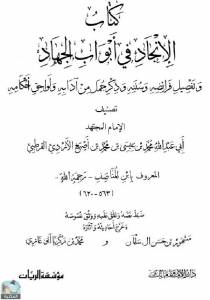 كتاب
الإنجاد في أبواب الجهاد
وتفصيل فرائضه وسننه وذكر جمل من آدابه ولواحق أحكامه
تصنيف
الإمام المجتهد
أبي عبد الله محمد بن عيسى بن محمد بن أصبغ الأزدي القرطبي
المعروف بابن المناصف - رحمه الله -
(٥٦٣ - ٦٢٠)
ضبط نصه وعلق عليه ووثق نصوصه
وخرج أحاديثه وآثاره
مشهور بن حسن آل سلمان و محمد بن زكريا أبو غازي
مؤسسة الريان